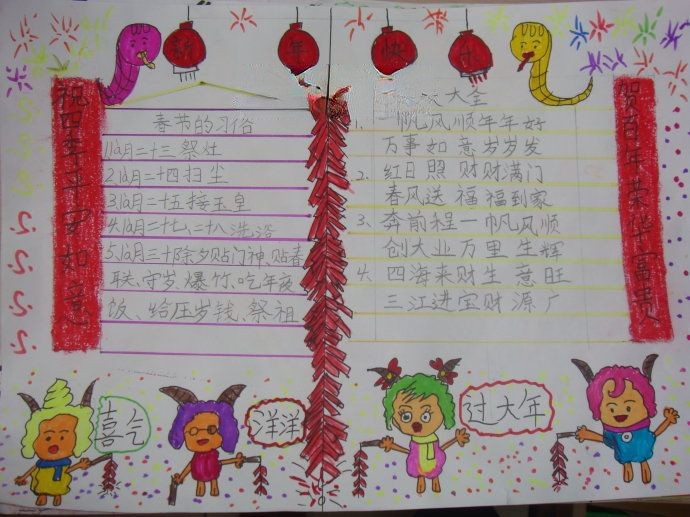 新年快乐
祝四季平安如意
春节的习俗
1.腊月二十三祭灶
2.腊月二十四扫尘
3.腊月二十五接玉皇
4.腊月二十七、二十八洗浴
5.腊月三十除夕贴门神、贴春
联、守岁、爆竹、吃年夜
饭、给压岁钱、祭祖
大全
1、一帆风顺年年好
万事如意岁岁发
2、红日照财财满门
春风送福福到家
3、奔前程一帆风顺
创大业万里生辉
4、四海来财生意旺
三江进宝财源广
贺百年荣华富贵
喜气
洋洋
过大年